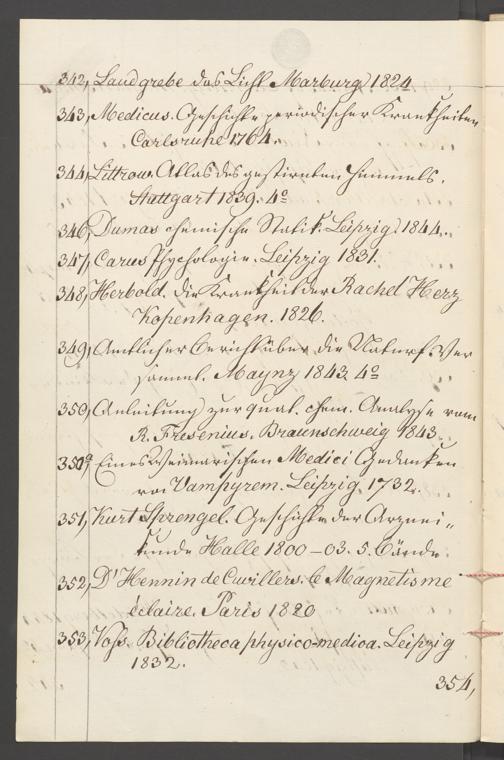 342, Landgrebe das Licht Marburg 1824
343, Medicus. Geschichte periodischer Krankheiten
Carlsruhe 1764.
344, Littrow. Atlas des gestirnten Himmels.
Stuttgart 1839. 4º
346, Dumas chemische Statik. Leipzig 1844.
347, Carus Psychologie. Leipzig 1831.
348, Herbold. die Krankheit der Rachel Herz
Kopenhagen. 1826.
349, Amtlicher Bericht über die Naturf. Ver
samml. Maynz 1843 4º
350, Anleitung zur qual. chem. Analyse vom
R. Fresenius. Braunschweig 1843.
350ª Eines Weimarischen Medici Gedanken
von Vampyrem. Leipzig. 1732.
351, Kurt Sprengel. Geschichte der Arznei„
kunde Halle 1800–03. 5. Bände
352, D'Hennin de Cuvillers. le Magnetisme
éclaire. Paris 1820
353, Voss. Bibliotheca physico-medica. Leipzig
1832.
354,